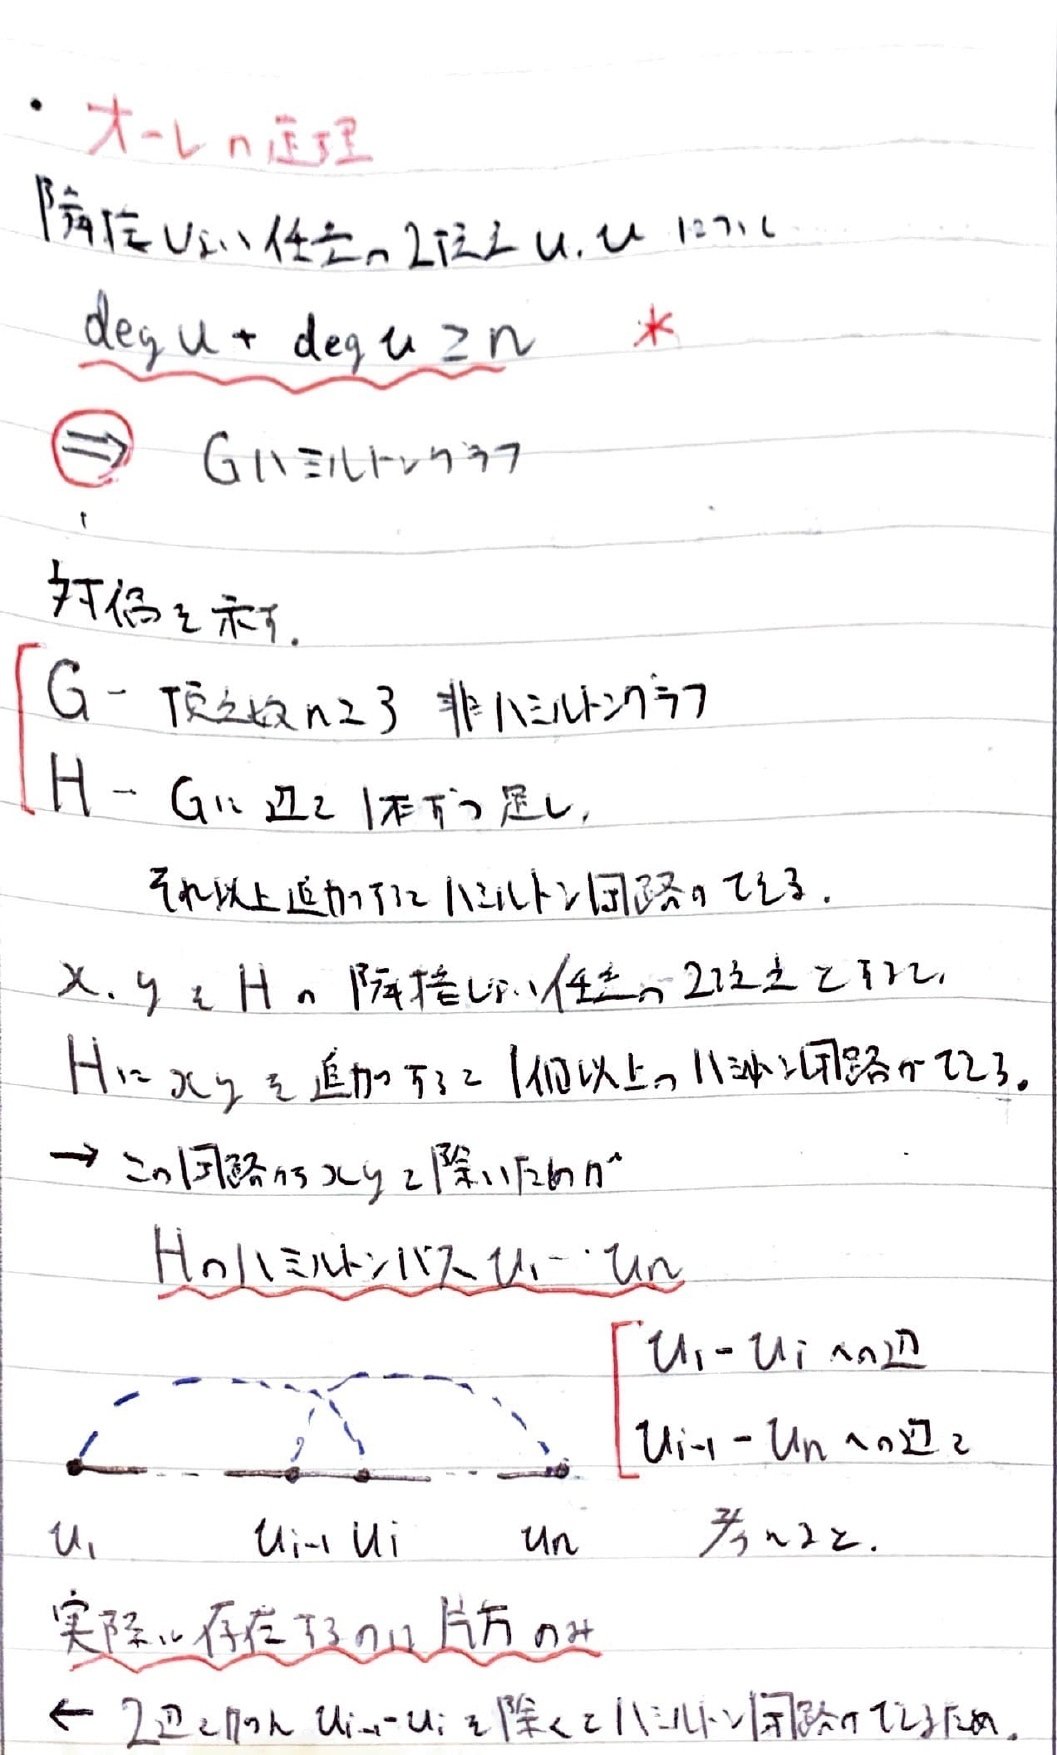 ・オーレの定理
隣接しない任意の2頂点 u, u について
deg u + deg u ≧ n *
⇒ Gハミルトングラフ
対偶を示す.
G - 頂点数n≧3 非ハミルトングラフ
H - Gに辺を1本ずつ足し,
それ以上追加するとハミルトン閉路ができる.
x, y を H の隣接しない任意の2頂点とすると,
Hに xy を追加すると1個以上のハミルトン閉路ができる.
→ この閉路から xy を除いたものが
Hのハミルトンパス u₁ … uₙ
u₁ - uᵢ への辺
uᵢ₋₁ - uₙ への辺を
u₁ uᵢ₋₁ uᵢ uₙ 考えると.
実際に存在するのは片方のみ
← 2辺を加え uᵢ₋₁-uᵢ を除くとハミルトン閉路ができるため.